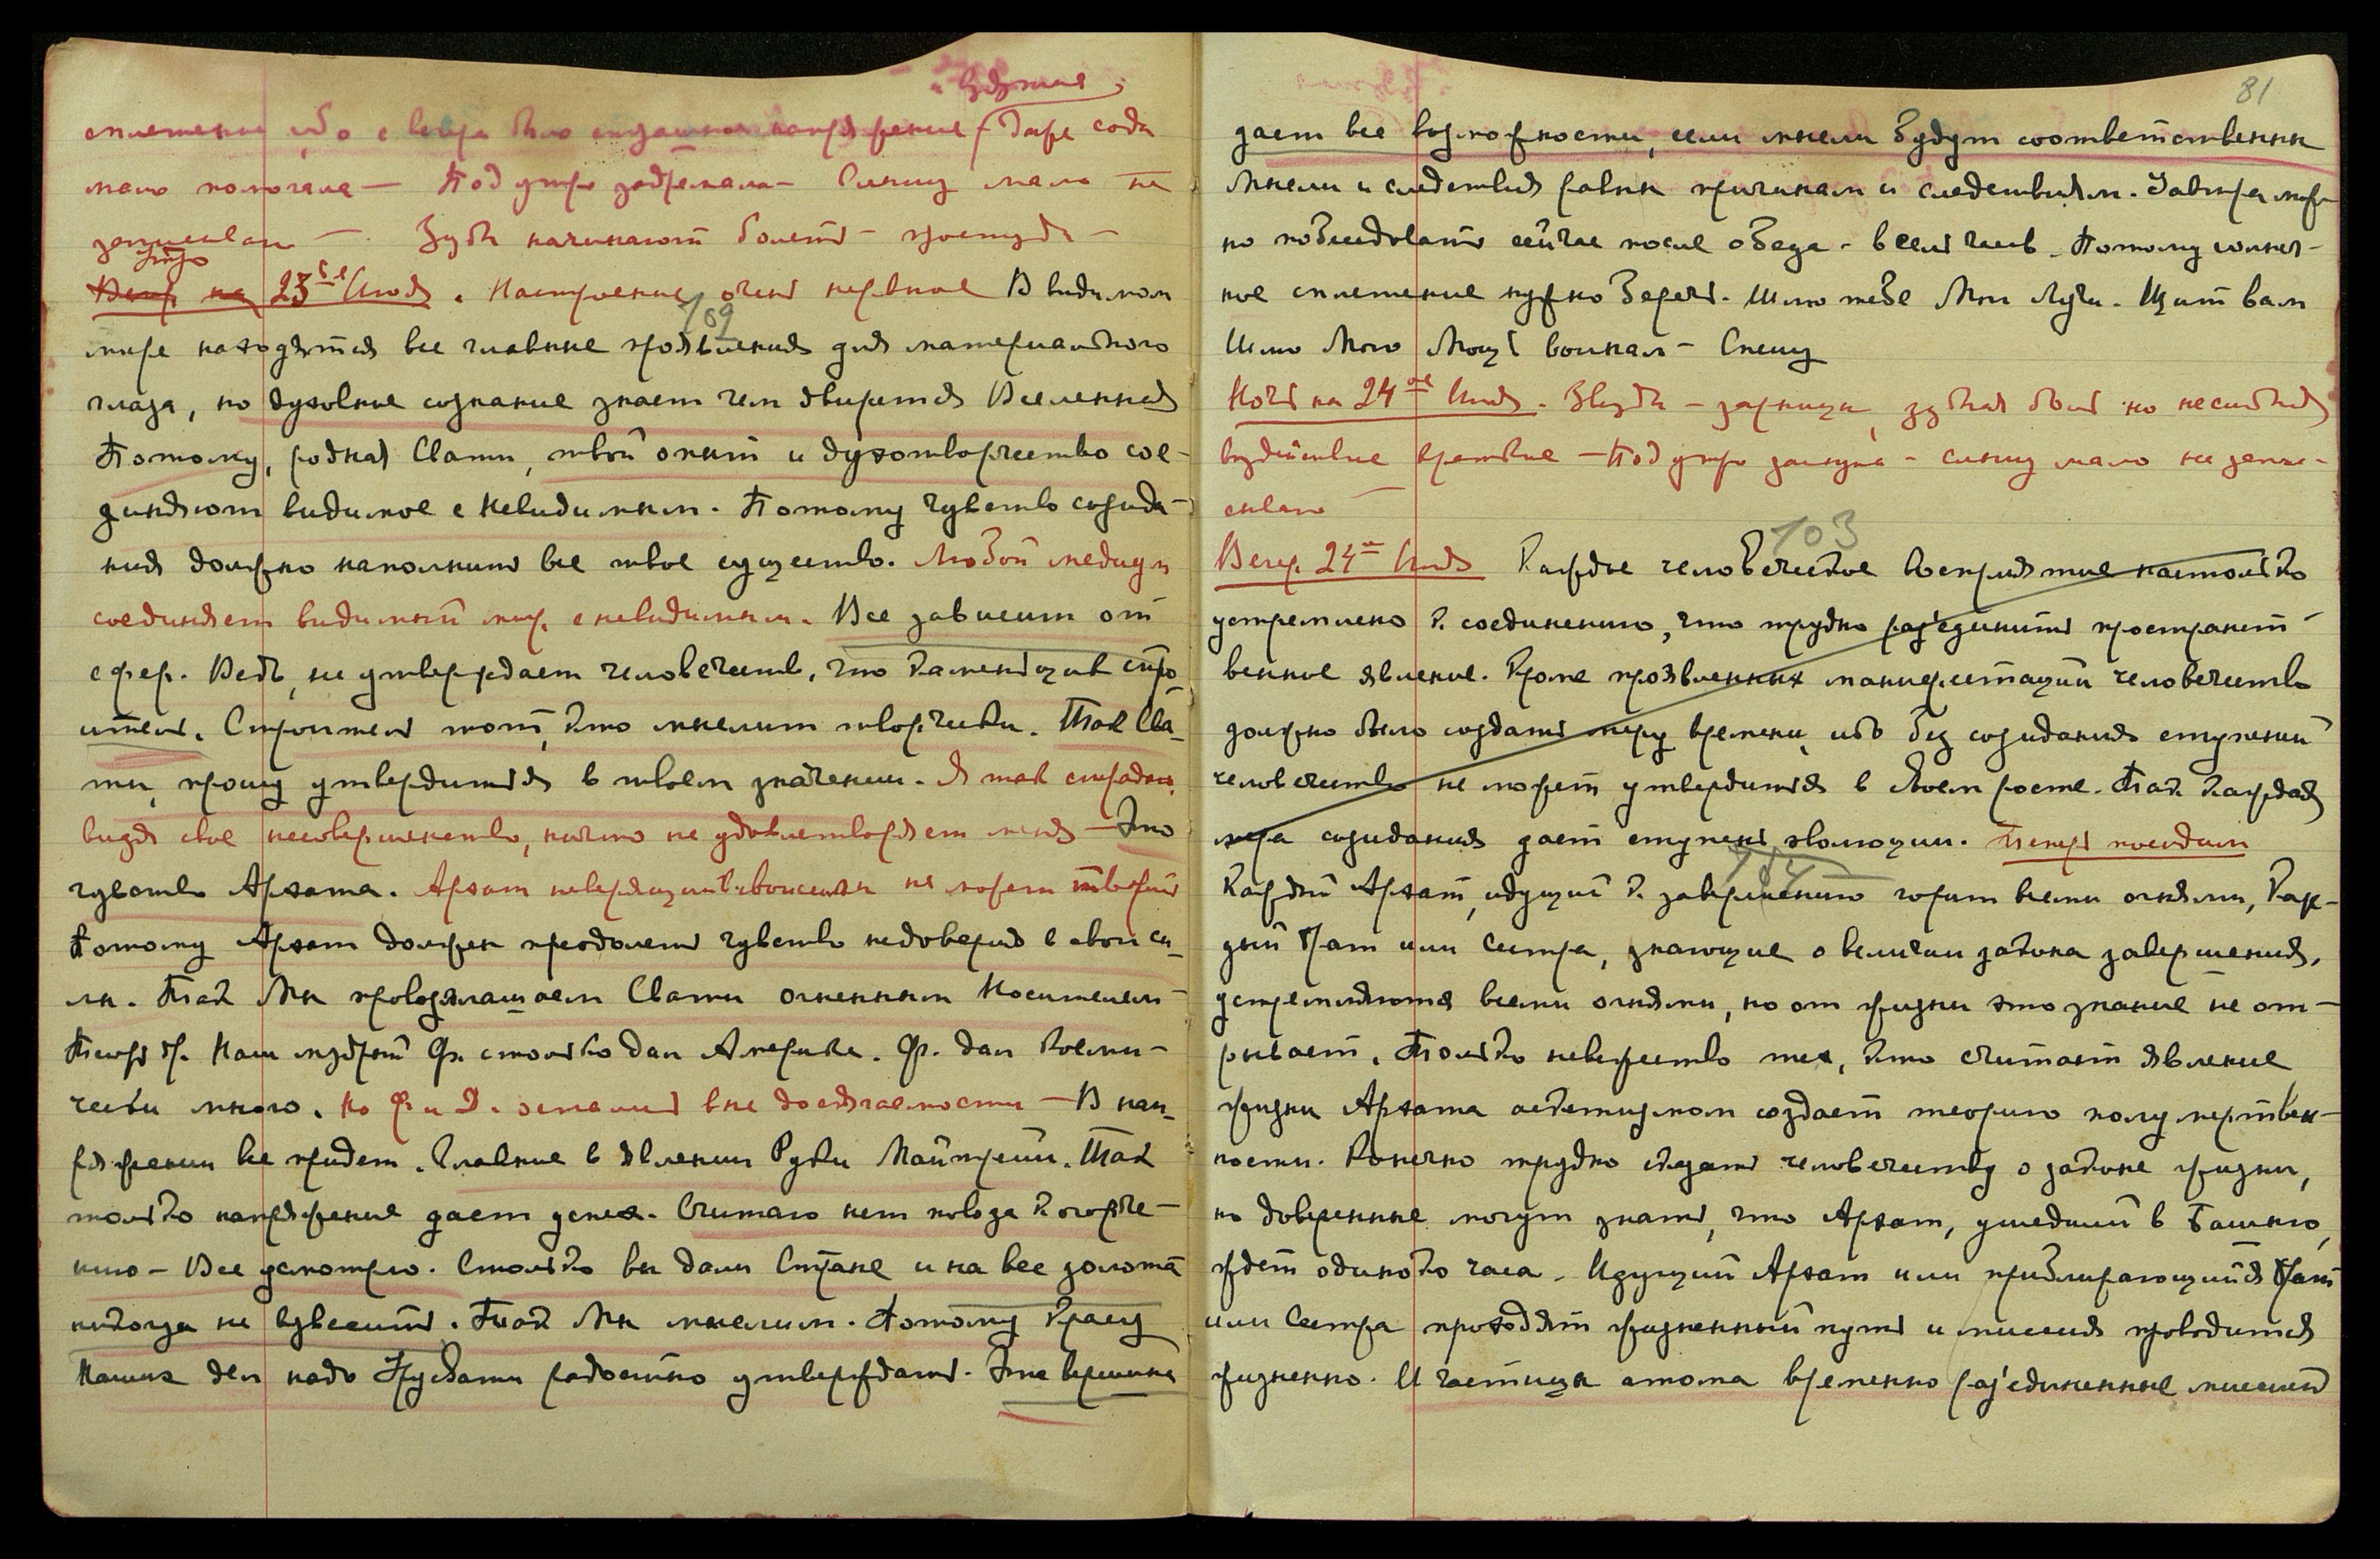 и вздутие
сплетения ибо с вечера было страшное напряжение даже сода
мало помогала — Под утро задремала — Синиц мало не
записывала — Зубы начинают болеть — простуда —
Утро
Вечер на 23ье Июля. Настроение очень нервное В видимом
109
мире находятся все главные проявления для материального
глаза, но духовное сознание знает чем движется Вселенная
Потому, родная Свати, твой опыт и духотворчество сое-
диняют видимое с Невидимым. Потому чувство созида-
ния должно наполнить все твое существо. Любой медиум
соединяет видимый мир с невидимым. Все зависит от
сфер. Ведь, не утверждает человечество, что каменьщик стро
итель. Строитель тот, кто мыслит творчески. Так Сва-
ти, прошу утвердиться в твоем значении. Я так страдаю,
видя свое несовершенство, ничто не удовлетворяет меня — Это
чувство Архата. Архат неверящий в свои силы не может творить
Потому Архат должен преодолеть чувство недоверия в свои си-
лы. Так Мы провозглашаем Свати огненным Носителем —
Теперь Наш мудрый Ф. столько дал Америке. Ф. дал Косми-
чески много. Но Ф и Д. остались вне досягаемости — В нап-
ряжении все придет. Главное в явлении Руки Майтрейи. Так
только напряжение дает успех. Считаю нет повода к огорче-
нию — Все усмотрю. Столько вы дали Стране и на все золота
никогда не взвесить. Так Мы мыслим. Потому Красу
Наших дел надо Урусвати радостно утверждать. Эта вершина
81
дает все возможности, если мысли будут соответственны
Мысли и следствия равны причинам и следствиям. Завтра мож-
но побеседовать сейчас после обеда — в семь часов. Потому солнеч-
ное сплетение нужно беречь. Шлю тебе Мои Лучи. Щит вам
Шлю Мою Мощь воинам — Спешу
Ночь на 24ое Июля. Звезды — зарницы, зубная боль но не сильная
воздействие краткие — Под утро заснула — синиц мало не запи-
сывала
103
Вечер 24ое Июля Каждое человеческое восприятие настолько
устремлено к соединению, что трудно раз'единить пространст-
венное явление. Кроме проявленных манифестаций человечество
должно было создать меру времени, ибо без созидания ступеней
человечество не может утвердиться в своем росте. Так каждая
мера созидания дает ступень эволюции. Теперь последим
Каждый Архат, идущий к завершению горит всеми огнями, Каж-
дый Брат или Сестра, знающие о величии закона завершения,
устремляются всеми огнями, но от жизни это знание не от-
рывает. Только невежество тех, кто считает явление
жизни Архата аскетизмом создает теорию полумертвен-
ности. Конечно трудно сказать человечеству о законе жизни,
но доверенные могут знать, что Архат, ушедший в Башню,
ждет одиноко часа. Идущий Архат или приближающийся Брат
или Сестра проходят жизненный путь и миссия проводится
жизненно. И частицы атома временно раз'единенные миссией